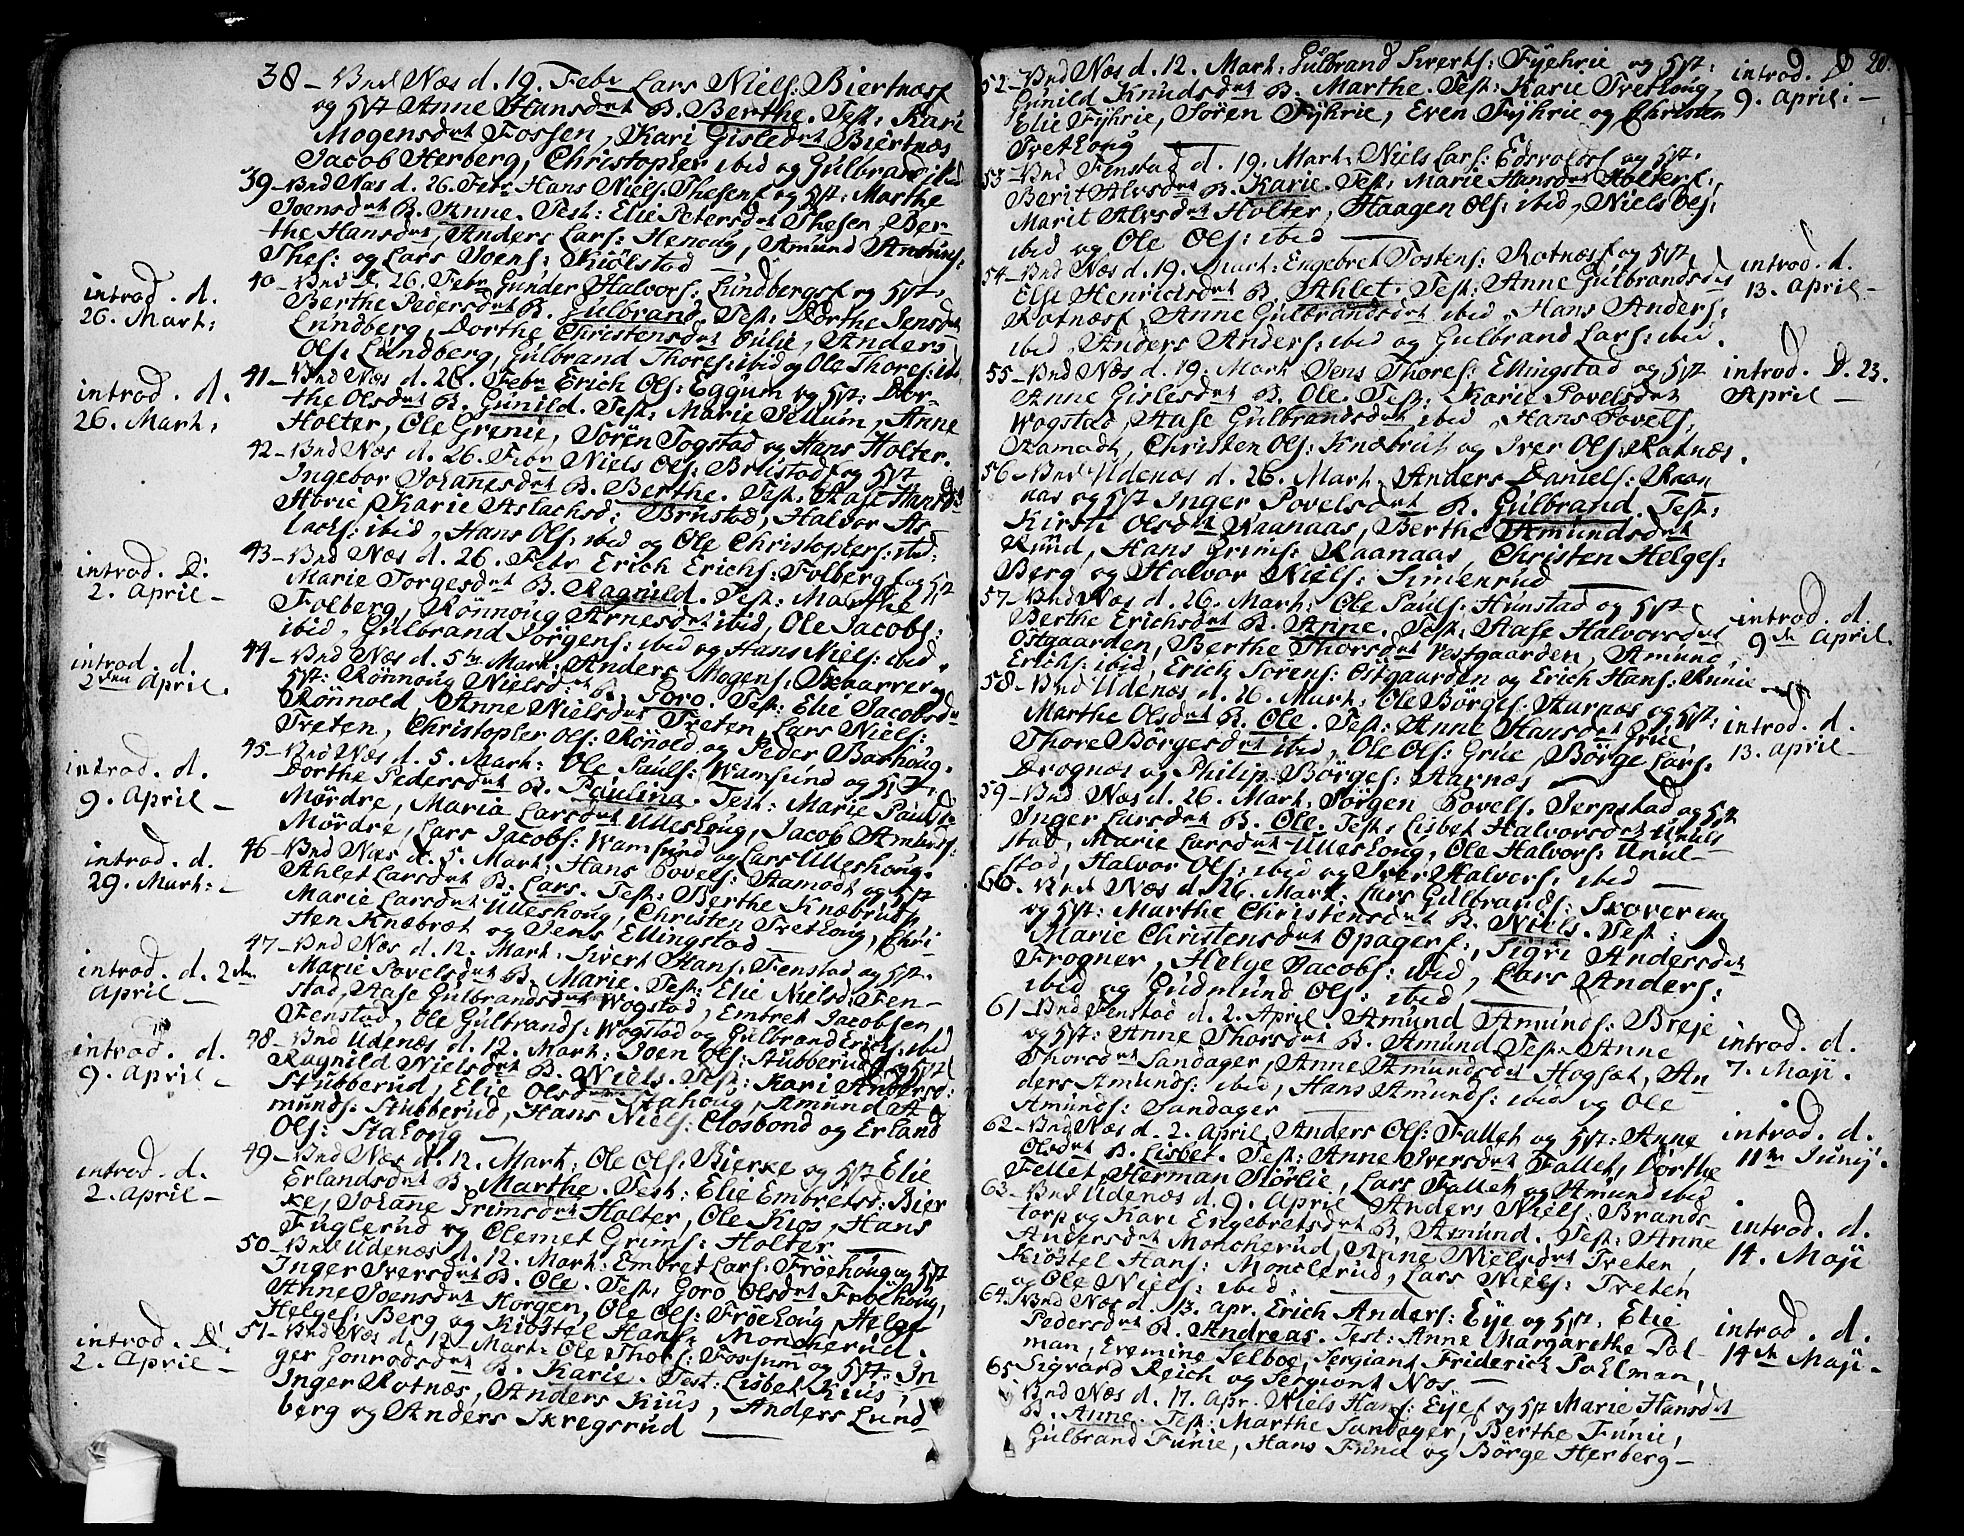 38 - Bnd Næs d. 19. Febr Lars Niels: Biertnæss
og Hst Anne Hansdtr B. Berthe. Test: Kari
Mogensdtr Fossen, Kari Gisledtr Biertnæs
Jacob Herberg, Christopher ibid og Gulbrand ibid
39 - Bnd Næs d. 26. Febr Hans Niels: Thesens og Hst: Marthe
Joensdtr B. Anne. Test: Elie Petersdtr Thesen, Ber-
the Hansdtr, Anders Lars: Henoug, Amund Amunds:
Thes: og Lars Joens: Kiölstad
introd. d.
26. Mart:
40 - Bnd d. 26. Febr Gunder Halvors: Lundbergs og Hst.
Berthe Pedersdtr B. Gulbrand. Test: Dorthe Jensdtr
Lundberg, Dorthe Christensdtr Julie, Anders
Ols: Lundberg, Gulbrand Thores: ibid og Ole Thores: ibd
introd. d.
26. Mart:
41 - Bnd Næs d. 26. Febr Erich Ols: Eggum og Hst: Dor-
the Olsdtr B. Gunild. Test: Marie Sellum, Anne
Holter, Ole Grenie, Sören Togstad og Hans Holter.
42 - Bnd Næs d. 26. Febr Niels Ols: Brustad og Hst
Ingebor Johanesdtr B. Berthe. Test: Aase Hansd
Horie, Karie Aslachsd: Brustad, Halvor As-
lachs: ibid, Hans Ols: ibid og Ole Christophers: ibd:
introd. D.
2. April -
43 - Bnd Næs d. 26. Febr Erich Erichs: Folberg og Hst
Marie Torgesdtr B. Ragnild. Test: Marthe
Folberg, Rönnoug Arnesdtr ibid, Ole Jacobs:
ibid, Gulbrand Jörgens: ibid og Hans Niels: ibid.
introd. d.
2den April.
44 - Bnd Næs d. 5te Mart: Anders Mogens: Skaarrer og
Hst: Rönnoug Nielsdtr B. Goro. Test: Elie Jacobsdtr
Rönnold Anne Nielsdtr Treten, Lars Niels:
Treten, Christopher Ols: Rönold og Peder Barhoug.
introd. d.
9. April -
45 - Bnd Næs d. 5. Mart: Ole Pauls: Wamsund og Hst.
Dorthe Pedersdtr B. Paulina. Test: Marie Paulsd
Mördre, Maria Larsdtr Ulleshoug, Jacob Amunds:
Mördre, Lars Jacobs: Wamsund og Lars Ulleshoug.
introd. d.
29. Mart: -
46 - Bnd Næs d. 5. Mart: Hans Povels: Aamodt og Hst
Ahlet Larsdtr B. Lars. Test: Berthe Knæbrudt
Marie Larsdtr Ulleshoug, Christen Trethoug, Chri-
sten Knæbræt og Jens Ellingstad
introd. d. 2den
April -
47 - Bnd Næs d. 12. Mart: Sivert Hans: Fenstad og Hst.
Marie Povelsdtr B. Marie. Test: Elie Nielsd: Fen-
stad, Aase Gulbrandsdtr Wogstad, Embret Jacobsen
Fenstad, Ole Gulbrands: Wogstad og Gulbrand Erichs: ibid
introd. d.
9. April -
48 - Bnd Udenæs d. 12. Mart: Joen Ols: Stubberud og Hst
Ragnild Nielsdtr B. Niels. Test: Kari Andersd:
Stubberud, Elie Olsdtr Stahoug, Amund A-
munds: Stubberud, Hans Niels: Closbond og Erland
Ols: Stahoug
introd. d.
2. April -
49 - Bnd Næs d. 12. Mart: Ole Ols: Bierke og Hst Elie
Erlandsdtr B. Marthe. Test: Elie Embretsd: Bier
ke, Johane Grimsdtr Holter, Ole Kios, Hans
Fuglerud og Clemet Grims: Holter
50 - Bnd Udenæs d. 12. Mart: Embret Lars: Fröehoug og Hst
Inger Iversdtr B. Ole. Test: Goro Olsdtr Fröehoug,
Anne Joensdtr Horgen, Ole Ols: Fröehoug, Helge
Helges: Berg og Kiöstel Hans: Moncherud.
introd. D.
2. April -
51 - Bnd Næs d. 12. Mart: Ole Thors: Fossum og Hst: In
ger Gonrodsdtr B. Karie. Test: Lisbet Kius,
Inger Rotnæs, Anders Kius, Anders Lund
berg og Anders Skregsrud
20.
52 - Bnd Næs d. 12. Mart: Gulbrand Siverts: Fyehrie og Hst:
Gunild Knudsdtr B. Marthe. Test: Karie Trethoug,
Elie Fyhrie, Sören Fyhrie, Even Fyhrie og Christen
Trethoug
introd. D
9. April: -
53 - Bnd Fenstad d. 19. Mart: Niels Lars: Edsvolds og Hst.
Berit Alvsdtr B. Karie. Test: Marie Hansdtr Holters,
Marit Alvsdtr Holter, Haagen Ols: ibid, Niels Ols:
ibid og Ole Ols: ibid
54 - Bnd Næs d. 19. Mart: Engebret Tostens: Rotnæs og Hst
Else Henrichsdtr B. Ahlet. Test: Anne Gulbrandsdtr
Rotnæs, Anne Gulbrandsdtr ibid, Hans Anders:
ibid, Anders Anders: ibid og Gulbrand Lars: ibid.
introd. d.
13. April -
55 - Bnd Næs d. 19. Mart Jens Thores: Ellingstad og Hst
Anne Gislesdtr B. Ole. Test: Karie Povelsdtr
Wogstad, Aase Gulbrandsdtr ibid, Hans Povels,
Aamodt, Christen Ols: Knæbrut og Iver Ols: Rotnæs.
introd. D. 23.
April -
56 - Bnd Udenæs d. 26. Mart. Anders Daniels: Raa-
nas og Hst Inger Povelsdtr B. Gulbrand. Test:
Kirsti Olsdtr Raanaas, Berthe Amundsdtr
Rund, Hans Grims: Raanaas Christen Helges:
Berg og Halvor Niels: Simenrud
57 - Bnd Næs d. 26. Mart: Ole Pauls: Hunstad og Hst
Berthe Erichsdtr B. Anne. Test: Aase Halvorsdtr
Ostgaarden, Berthe Thorsdtr Vestgaarden, Amund
Erichs: ibid, Erich Sörens: Östgaarden og Erich Hans: Runie
introd. d.
9de April.
58 - Bnd Udenæs d. 26. Mart: Ole Börges: Aarnæs og Hst:
Marthe Olsdtr B. Ole. Test: Anne Hansdtr Grue,
Thore Börgesdtr ibid, Ole Ols: Grue, Börge Lars:
Drognæs og Philip Börges: Aarnæs
introd. d.
13. April -
59 - Bnd Næs d. 26. Mart: Jörgen Povels. Jerpstad og Hst
Inger Larsdtr B. Ole. Test: Lisbet Halvorsdtr Unuls
stad, Marie Larsdtr Ulleshoug, Ole Halvors: Unul-
stad, Halvor Ols: ibid og Iver Halvors: ibid
60. Bnd Næs d. 26. Mart: Lars Gulbrands: Skovereng
og Hst: Marthe Christensdtr B. Niels. Test:
Marie Christensdtr Opagers, Sigri Andersdtr
Frogner, Helge Jacobs: ibid, Lars Anders:
ibid og Gudmund Ols: ibid
61 - Bnd Fenstad d. 2. April. Amund Amunds: Breje
og Hst: Anne Thorsdtr B. Amund Test: Anne
Thorsdtr Sandager, Anne Amundsdtr Hogset, An
ders Amunds: ibid, Hans Amunds: ibid og Ole
Amunds: Sandager
introd. d.
7. Maji.
62 - Bnd Næs d. 2. April, Anders Ols: Fallet og Hst: Anne
Olsdtr B. Lisbet. Test: Anne Iversdtr Fallet, Dorthe
Fellet, Herman Hiörlie, Lars Fallet og Amund ibid
introd. d.
11te Junij.
63 - Bnd Udenæs d. 9. April Anders Niels: Brands-
torp og Kari Engebretsdtr B. Amund. Test: Anne
Andersdtr Moncherud, Anne Nielsdtr Treten,
Kiöstel Hans: Monclerud, Lars Niels: Treten
og Ole Niels: ibid.
introd. d.
14. Maji
64 - Bnd Næs d. 13. apr. Erich Anders: Eye og Hst: Elie
Pedersdtr B. Andreas. Test: Anne Margarethe Pol-
man, Eremine Selboe, Sergiant Friderich Pohlman,
Sigvard Reich og Sergiant Nos
introd. d.
14de Maji -
65. Bnd Næs d. 17. Apr. Niels Hans: Eyes og Hst Marie Hansdtr
B. Anne. Test: Marthe Sandager, Berthe Funie,
Gulbrand Funie, Hans Funie og Börge Herberg -